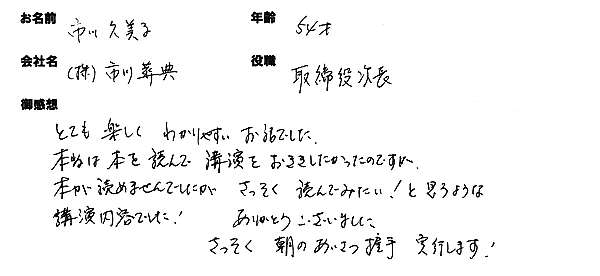 お名前 市川久美子 年齢 54才
会社名 (株)市川葬典 役職 取締役次長
御感想
とても楽しく わかりやすい お話でした。
本当は本を読んで講演をおききしたかったのですが、
本が読めませんでしたが さっそく 読んでみたい!と思うような
講演内容でした! ありがとうございました
さっそく 朝のあいさつ握手 実行します!